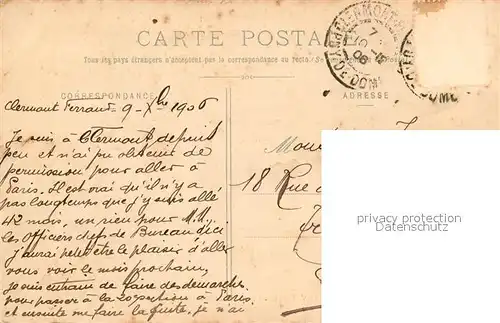 CARTE POSTALE
Tous les pays étrangers n'acceptent pas la correspondance au recto
CORRESPONDANCE
ADRESSE
Clermont Ferrand 9-Xbre 1906
Je suis à Clermont depuis
peu et n'ai pu obtenir de
permission pour aller à
Paris. Il est vrai qu'il n'y a
pas longtemps que j'y suis allé
42 mois, un rien pour M.M.
les Officiers chefs de Bureau d'ici
j'aurai peut être le plaisir d'aller
vous voir le mois prochain,
je suis entrain de faire des démarches
pour passer à la 20e section à Paris,
et ensuite me faire la fuite, je n'ai
18 Rue
privacy protection
Datenschutz